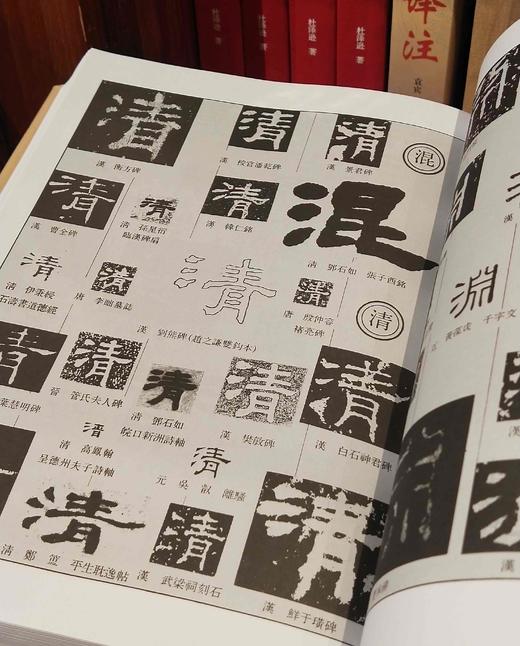 杜澤遜 著
杜澤遜 著
杜澤遜 著
译注
清 清 清
漢 衡方碑
漢 校官潘乾碑
漢 景君碑
混
清 清 清 混
漢 曹全碑
清 孫星衍
臨漢碑扇
漢 韓仁銘
清 鄧石如 張子西銘
清 清 清 清
清 伊秉綬
石濤書道德經
唐 李聰墓誌
漢 劉熊碑(趙之謙雙鈎本)
唐 殷仲容
褚亮碑
清
清 清 清 清 清
葉慧明碑
晉 管氏夫人碑
清 鄧石如
皖口新洲詩軸
漢 樊敏碑
漢 白石神君碑
清 清
清 高鳳翰
呈德州夫子詩軸
元 吳叡 離騷
清 清 清
清 鄭簠 平生耽逸帖
漢 武梁祠刻石
漢 鮮于璜碑
淵
千字文